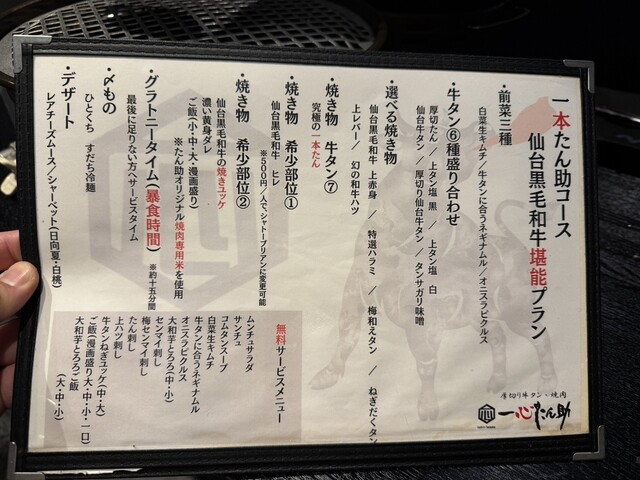 一本たん助コース
仙台黒毛和牛堪能プラン
・前菜三種
白菜生キムチ／牛タンに合うネギナムル／オニスラピクルス
・牛タン⑥種盛り合わせ
厚切たん／上タン塩 黒 ／ 上タン塩 白
仙台牛タン／厚切り仙台牛タン／タンサガリ味噌
・選べる焼き物
仙台黒毛和牛 上赤身 ／ 特選ハラミ ／ 梅和えタン ／ ねぎだくタン
上レバー／ 幻の和牛ハツ
・焼き物 牛タン⑦
究極の一本たん
・焼き物 希少部位①
仙台黒毛和牛 ヒレ
※５００円／人で、シャトーブリアンに変更可能
・焼き物 希少部位②
仙台黒毛和牛の焼きユッケ
濃い黄身ダレ
ご飯(小・中・大・漫画盛り)
※たん助オリジナル焼肉専用米を使用
・グラトニータイム(暴食時間) ※約十五分間
最後に足りない方へサービスタイム
・〆もの
ひとくち すだち冷麺
・デザート
レアチーズムース／シャーベット(日向夏・白桃)
無料サービスメニュー
ムンチュサラダ
サンチュ
コムタンスープ
白菜生キムチ
牛タンに合うネギナムル
オニスラピクルス
大和芋とろろ(中・小)
センマイ刺し
梅センマイ刺し
たん刺し
上ハツ刺し
牛タンねぎユッケ(中・大)
ご飯(漫画盛り大・中・小・一口)
大和芋とろろご飯
(大・中・小)
厚切り牛タン・焼肉
一心たん助